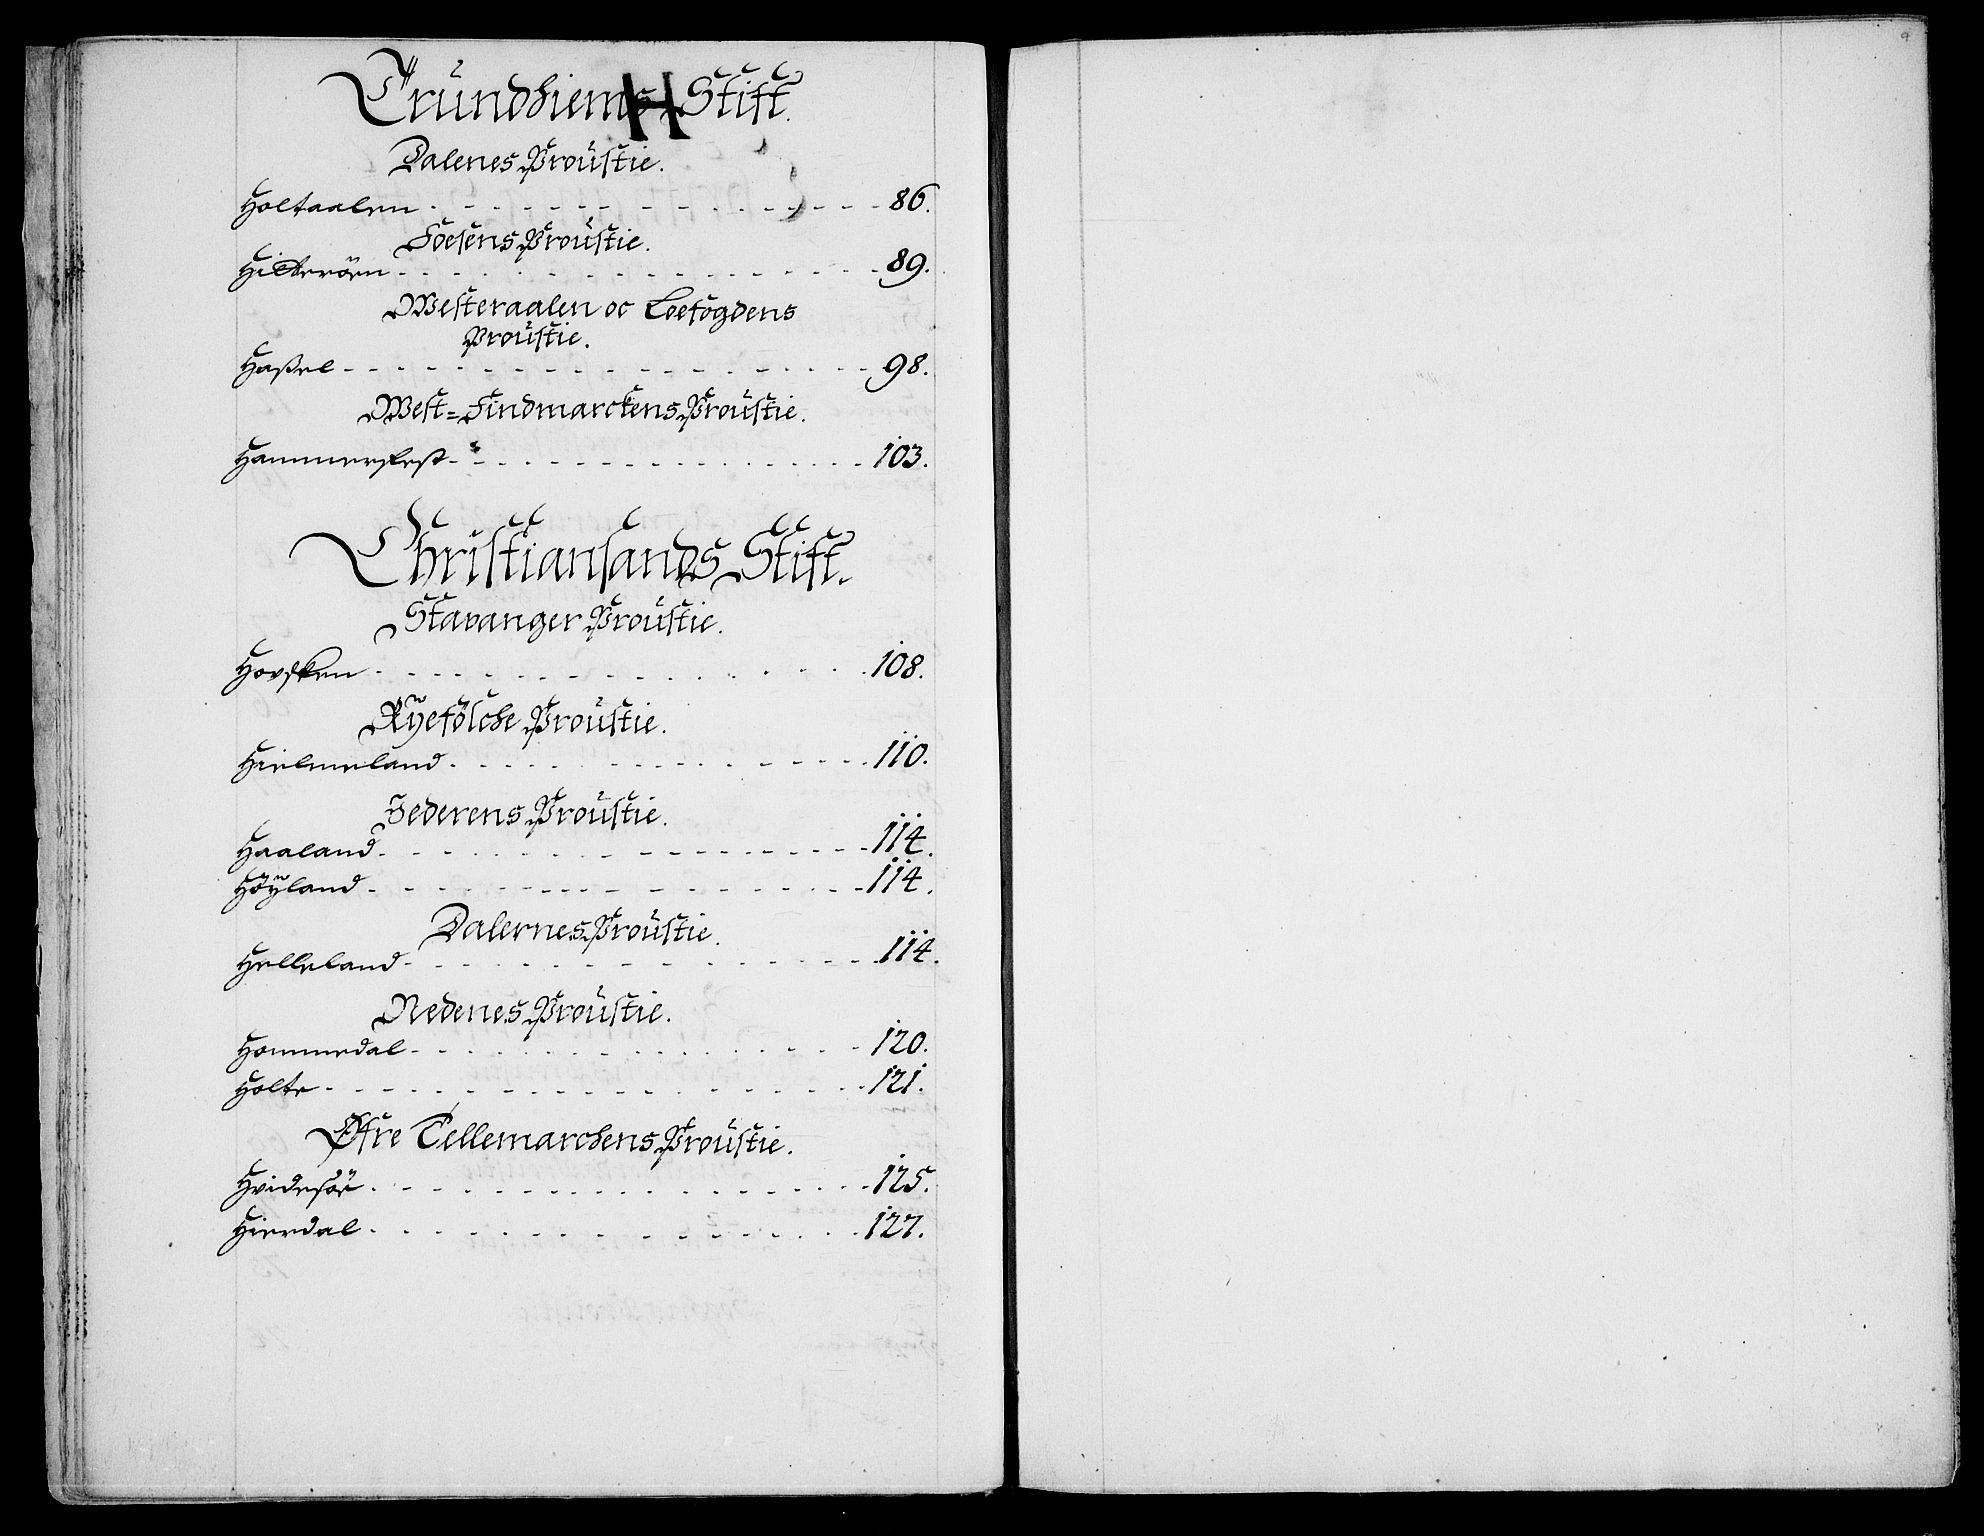 Trundhiems Stift.
H
Dalenes Proustie.
Holtaalen 86.
Foesens Proustie.
Hitterøen 89.
Westeraalen oc Loefogdens
Proustie.
Haßel 98.
West=Findmarckens Proustie.
Hammerfest 103.
Christiansands Stift.
Stavanger Proustie.
108.
Ryefölche Proustie.
Hielmeland 110.
Jederens Proustie.
Haaland 114.
Höyland 114.
Dalernes Proustie.
Helleland 114.
Nedenes Proustie.
Hommedal 120.
Holte 121.
Øfre Tellemarchens Proustie.
Hvidesöe 125.
Hierdal 127.